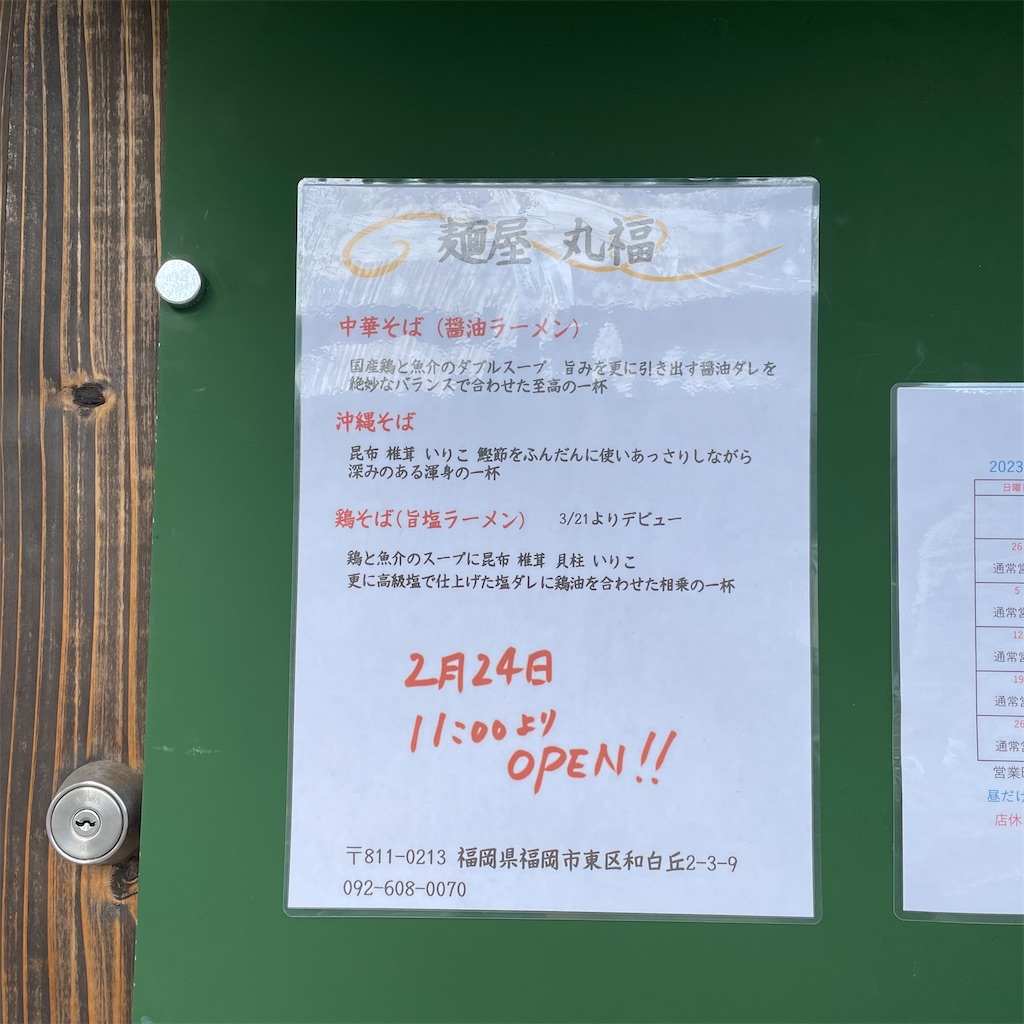 麺屋 丸福
中華そば（醤油ラーメン）
国産鶏と魚介のダブルスープ 旨みを更に引き出す醤油ダレを
絶妙なバランスで合わせた至高の一杯
沖縄そば
昆布 椎茸 いりこ 鰹節をふんだんに使いあっさりしながら
深みのある渾身の一杯
鶏そば（旨塩ラーメン） 3/21よりデビュー
鶏と魚介のスープに昆布 椎茸 貝柱 いりこ
更に高級塩で仕上げた塩ダレに鶏油を合わせた相乗の一杯
2月24日
11:00より
OPEN!!
〒811-0213 福岡県福岡市東区和白丘2-3-9
092-608-0070
2023
日曜
26
通常営
5
通常営
12
通常営
19
通常営
26
通常営
営業
昼だけ
店休